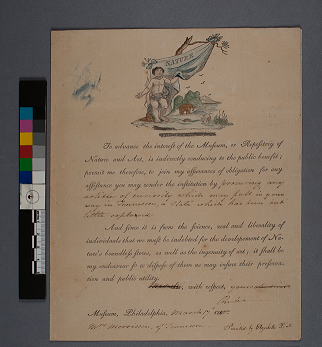 NATURE
To advance the interest of the Museum, or Repository of
Nature and Art, is indirectly conducing to the public benefit;
permit me therefore, to join my assurances of obligation for any
assistance you may render the institution by procuring any
articles of curiosity which may fall in your
way in Tennessee, a State which has been but
little explored
And since it is from the science, zeal and liberality of
individuals that we must be indebted for the developement of Na-
ture's boundless stores, as well as the ingenuity of art; it shall be
my endeavour so to dispose of them as may insure their preserva-
tion and public utility.
with respect, your
Museum, Philadelphia, March
of Tennessee
Printed by